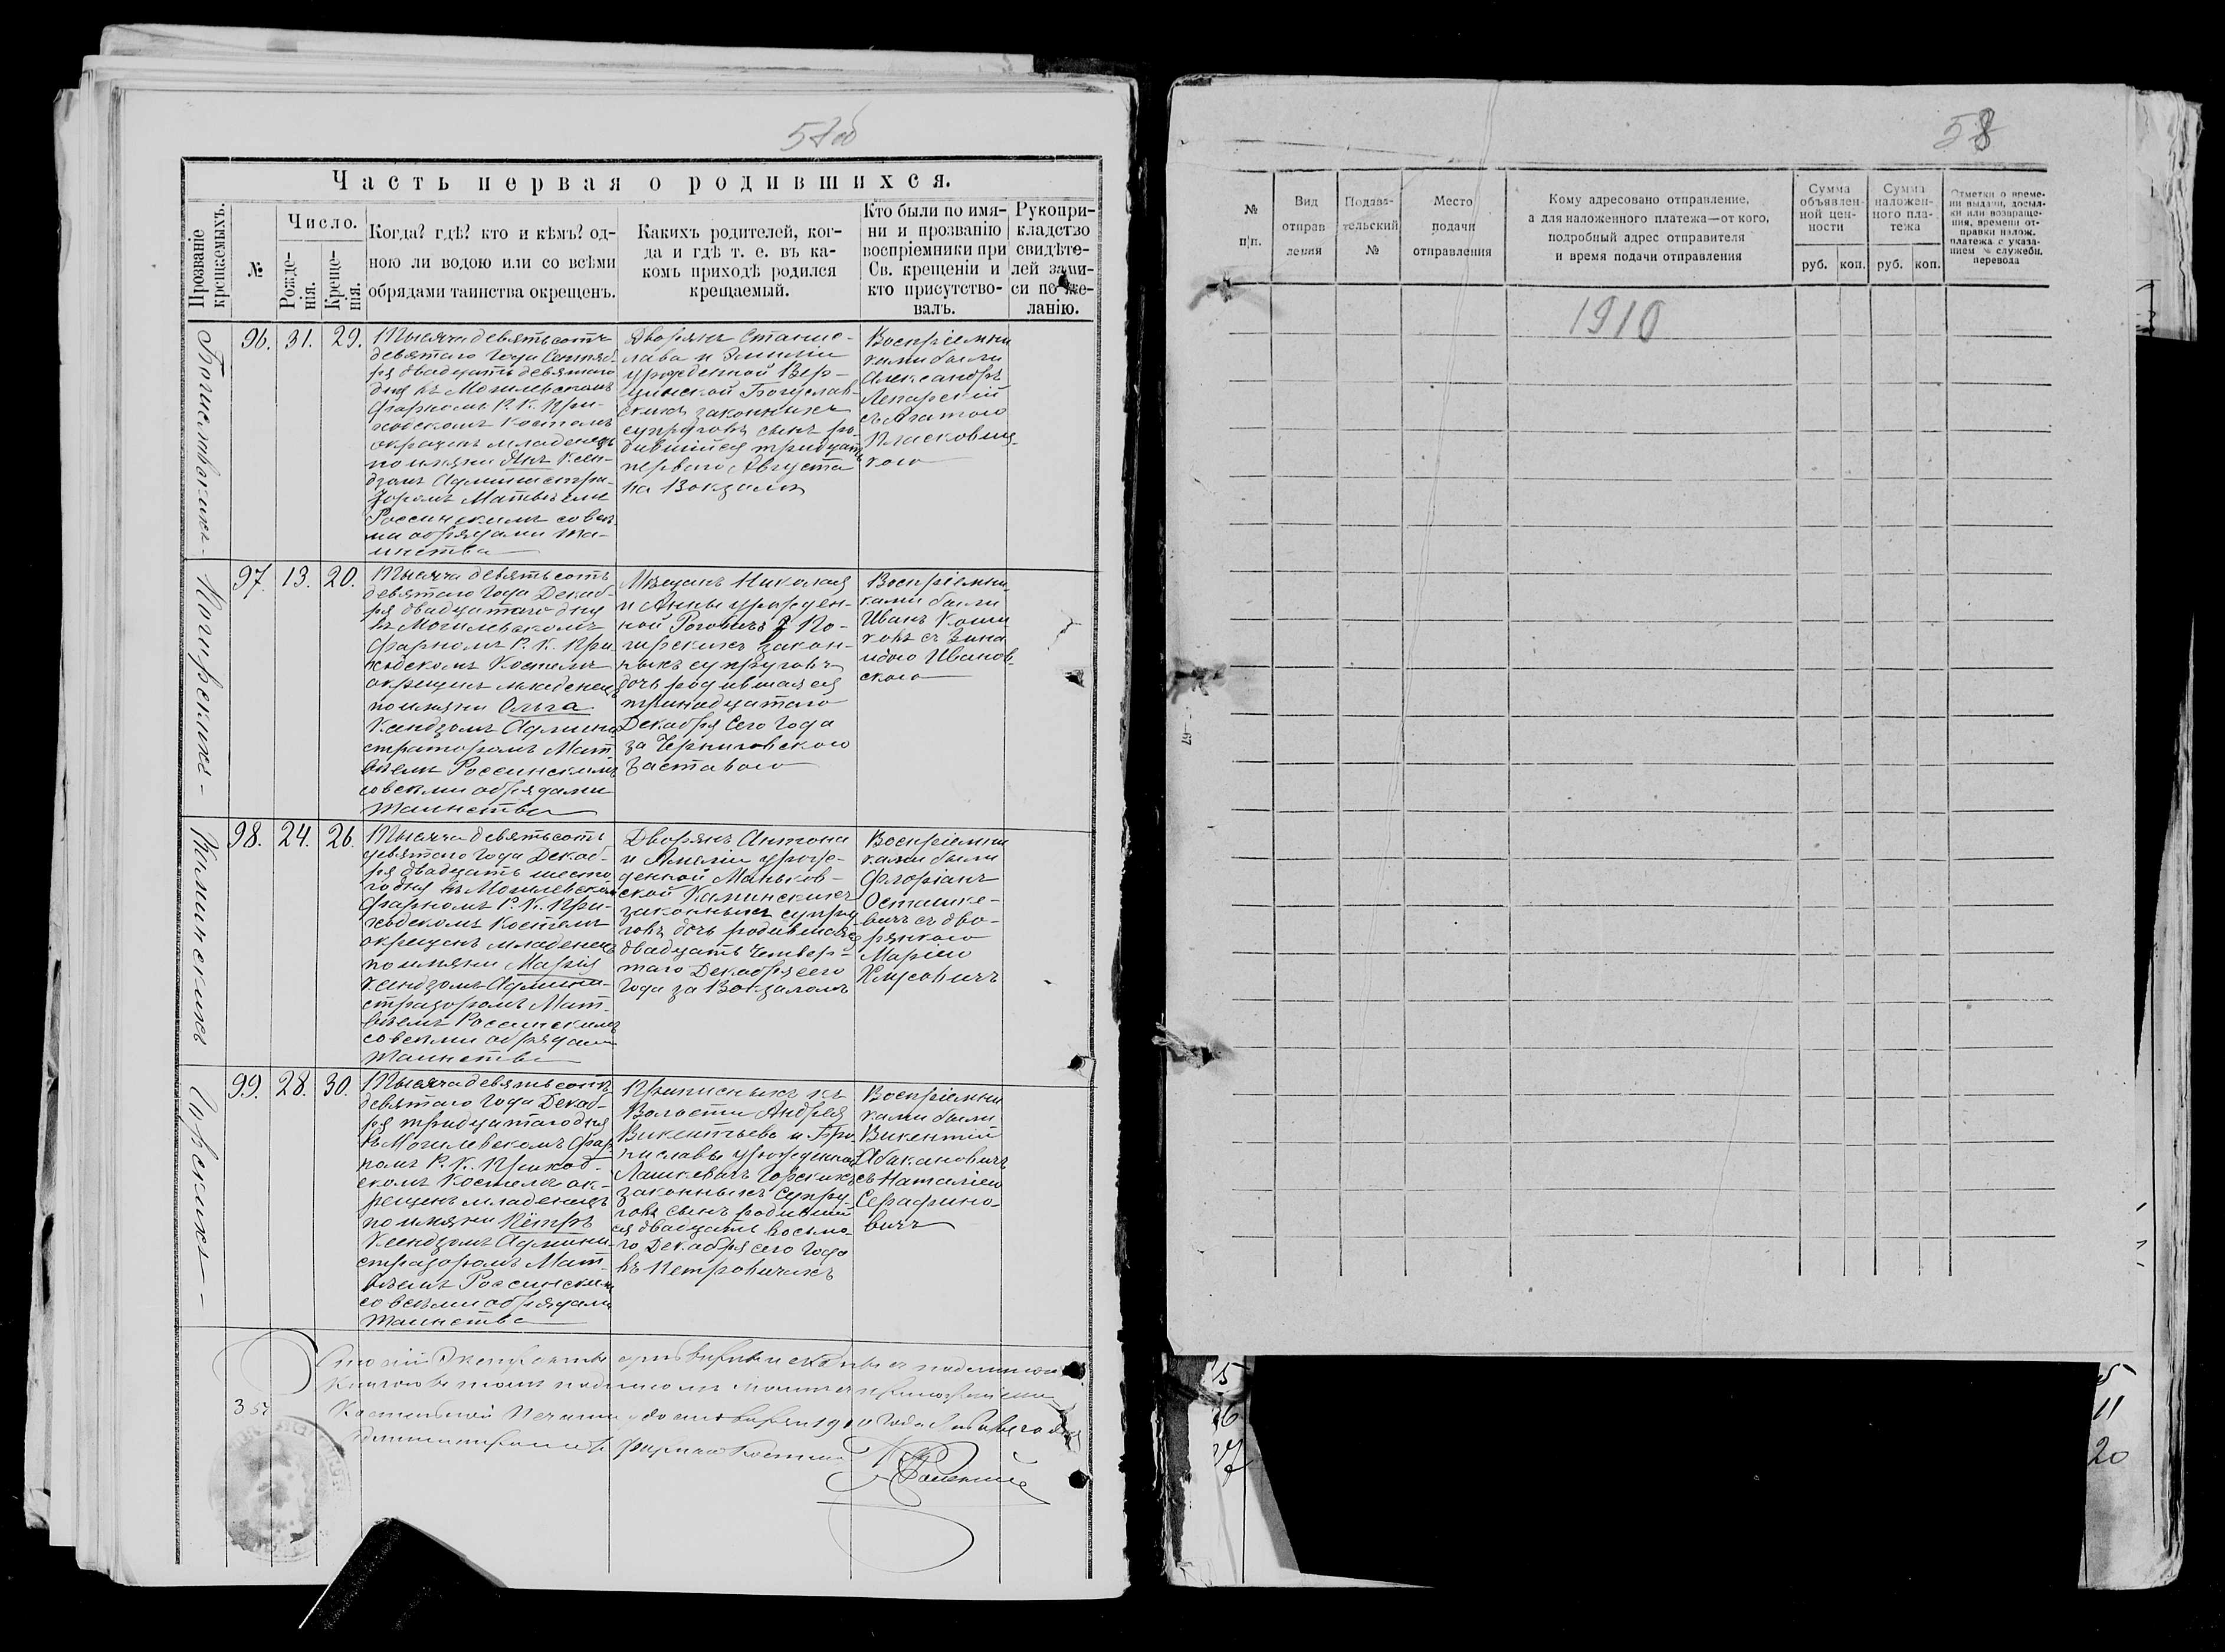 57об
Часть первая о родившихся.
Прозваніе крещаемыхъ.
№
Число.
Рожде-
нія.
Креще-
нія.
Когда? гдѣ? кто и кѣмъ? од-
ною ли водою или со всѣми
обрядами таинства окрещенъ.
Какихъ родителей, ког-
да и гдѣ т. е. въ ка-
комъ приходѣ родился
крещаемый.
Кто были по имя-
ни и прозванію
воспріемники при
Св. крещеніи и
кто присутство-
валъ.
Рукопри-
кладство
свидѣте-
лей запи-
си по же-
ланію.
96. 31. 29.
Тысяча девятьсотъ
девятаго года Сентяб-
ря двадцать девятаго
дня въ Могилевскомъ
фарномъ Р. К. При-
ходскомъ Костелѣ
окрещенъ младенецъ
по имяни Янъ Ксен-
дзомъ Администра-
торомъ Матвѣемъ
Россинскимъ со всѣ-
ми обрядами та-
инства
Дворянъ Станис-
лава и Эмиліи
урожденной Вер-
цинской Богуслав-
скихъ законныхъ
супруговъ сынъ ро-
дившійся тридцать
перваго Августа
на Вокзалѣ
Воспріемни-
ками были
Александръ
Лекарскій
съ Агатою
Пласковиц-
кою
Когирскихъ
97. 13. 20.
Тысяча девятьсотъ
девятаго года Декаб-
ря двадцатаго дня
въ Могилевскомъ
фарномъ Р. К. При-
ходскомъ Костелѣ
окрещенъ младенецъ
по имяни Ольга
Ксендзомъ Админи-
страторомъ Мат-
вѣемъ Россинскимъ
со всѣми обрядами
таинства
Мѣщанъ Николая
и Анны урожден-
ной Роговичъ Ко-
гирскихъ закон-
ныхъ супруговъ
дочь родившаяся
тринадцатаго
Декабря сего года
за Черниговскою
Заставою
Воспріемни-
ками были
Иванъ
съ Зина-
идою Иванов-
скою
Каминскихъ
98. 24. 26.
Тысяча девятьсотъ
девятаго года Декаб-
ря двадцать шесто-
го дня въ Могилевском
фарномъ Р. К. При-
ходскомъ Костелѣ
окрещенъ младенецъ
по имяни Марія
Ксендзомъ Админи-
страторомъ Мат-
вѣемъ Россинскимъ
со всѣми обрядами
таинства
Дворянъ Антона
и Амеліи урож-
денной Маньков-
ской Каминскихъ
законныхъ супру-
говъ дочь родившаяся
двадцать четвер-
таго Декабря сего
года за Вокзаломъ
Воспріемни-
ками были
Флоріанъ
Осташке-
вичъ съ дво-
рянкою
Маріею
Горскихъ
99. 28. 30.
Тысяча девятьсотъ
девятаго года Декаб-
ря тридцатаго дня
въ Могилевскомъ фар-
номъ Р. К. Приход-
скомъ Костелѣ ок-
рещенъ младенецъ
по имяни Пётръ
Ксендзомъ Админи-
страторомъ Мат-
вѣемъ Россинским
со всѣми обрядами
таинства
Приписныхъ къ
Волости Андрея
Викентьева и Бро-
ниславы урожденной
Лашкевичъ Горскихъ
законныхъ супру-
говъ сынъ родивший-
ся двадцать восьма-
го Декабря сего года
въ Петровичахъ
Воспріемни-
ками были
Викентій
Абакановичъ
съ Наталіею
Серафино-
вичъ
58
№
п/п.
Вид
отправ
ления
Подава-
тельский
№
Место
подачи
отправления
Кому адресовано отправление,
а для наложенного платежа—от кого,
подробный адрес отправителя
и время подачи отправления
Сумма
объявлен-
ной цен-
ности
руб. коп.
Сумма
наложен-
ного пла-
тежа
руб. коп.
Отметки о време-
ни выдачи, досыл-
ки или возвраще-
ния, времени от-
правки налож.
платежа с указа-
нием № служебн.
перевода
1910
11
20